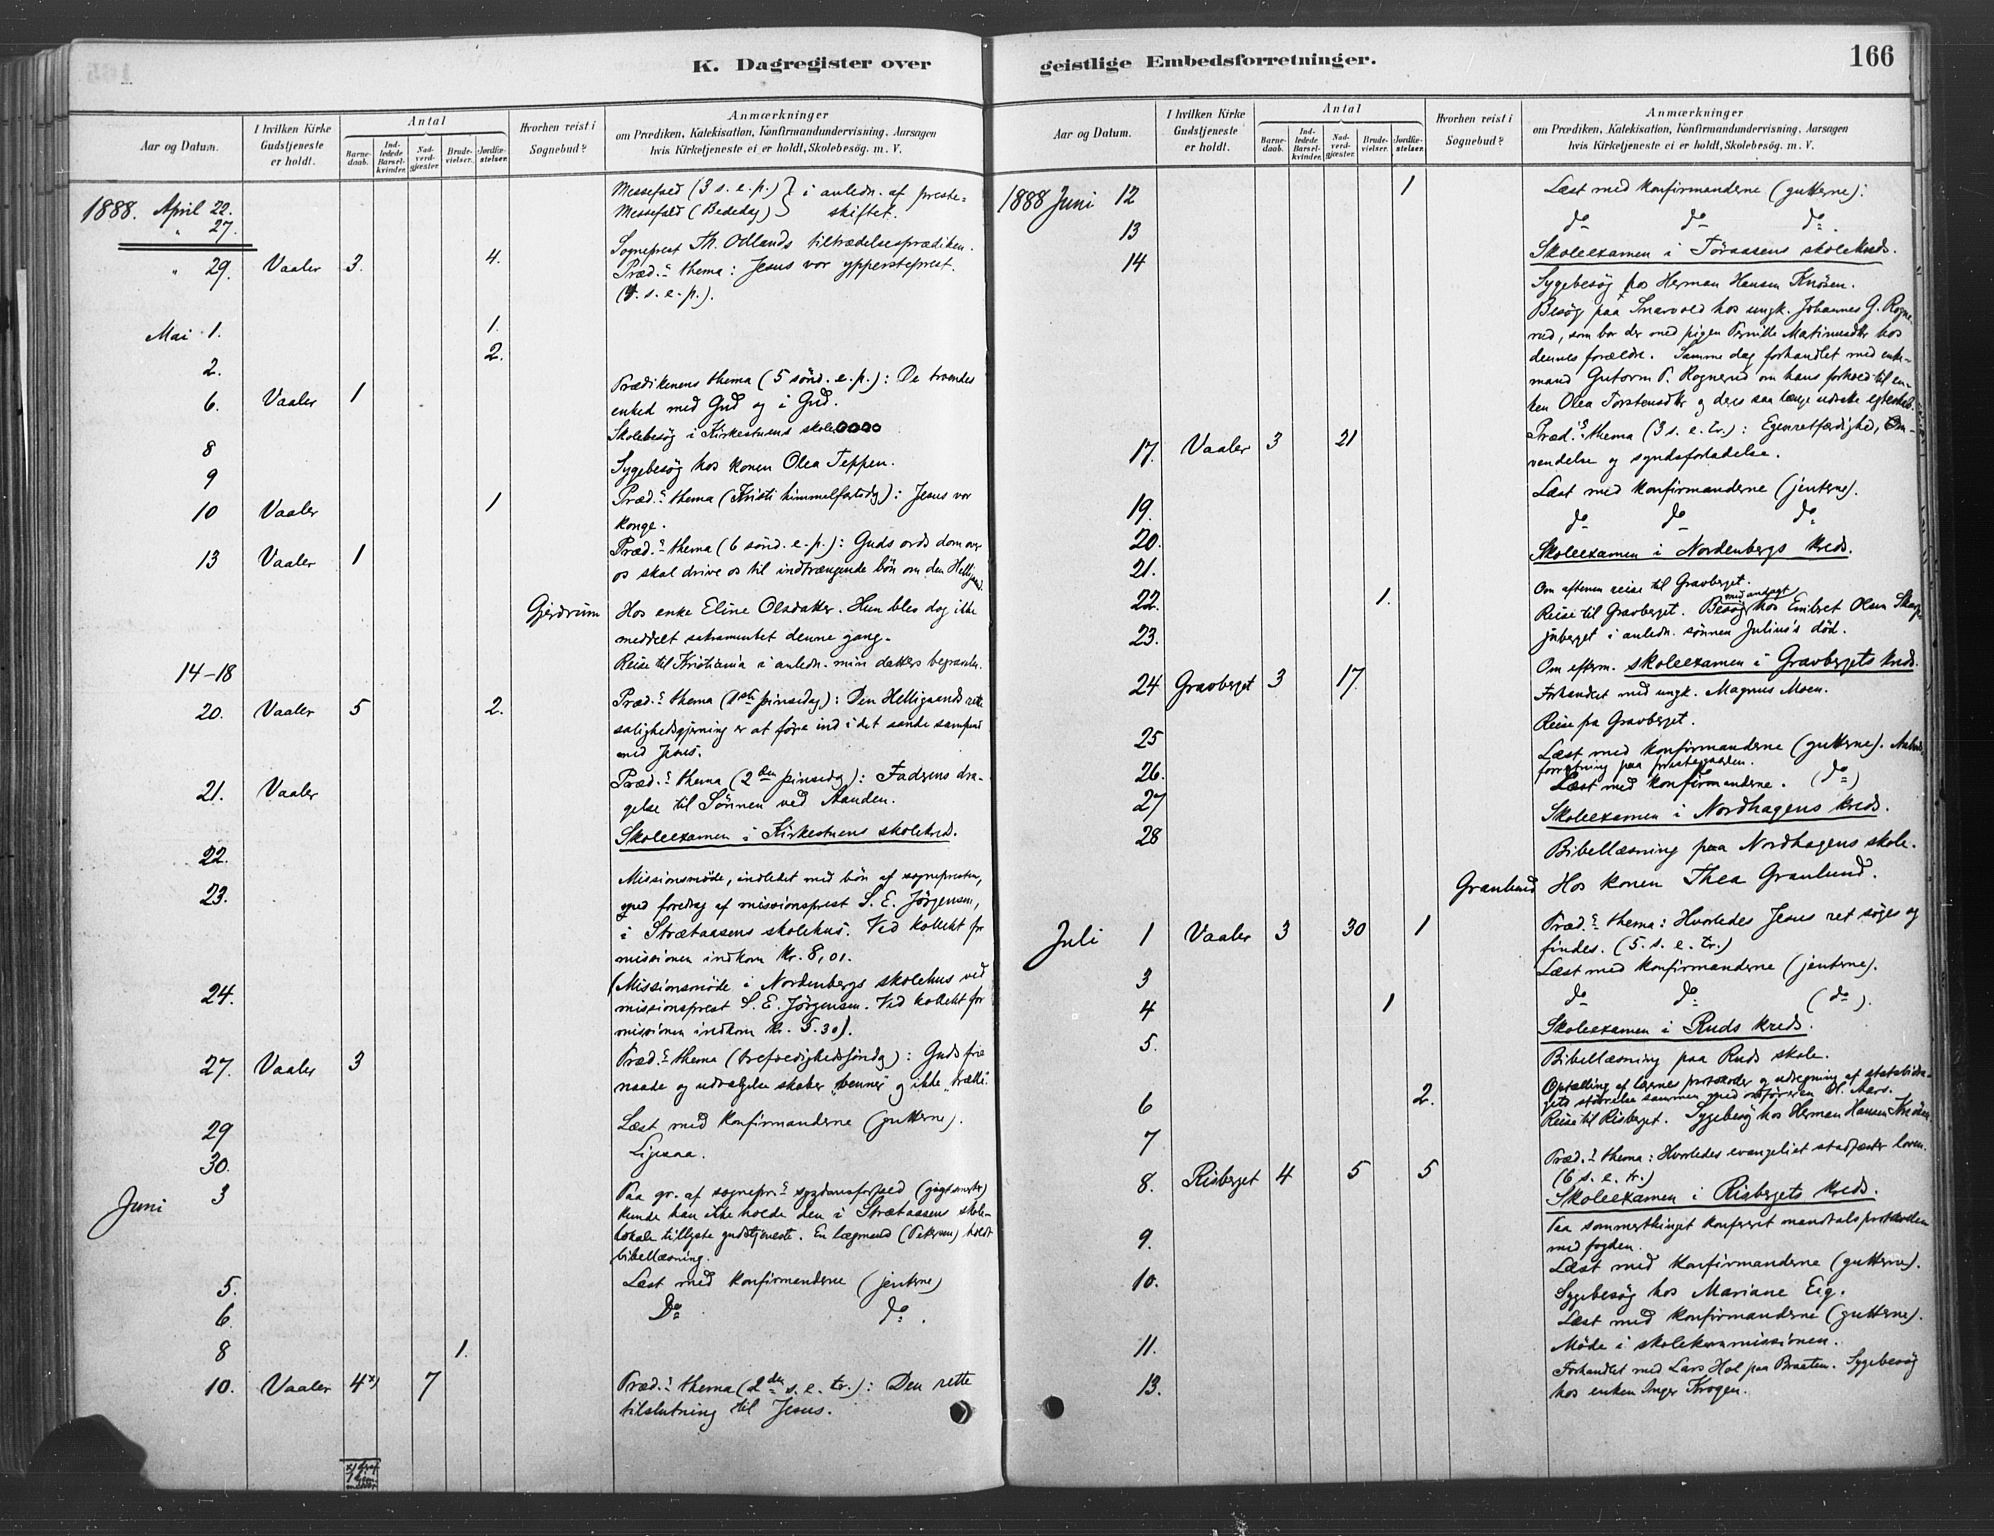 K. Dagregister over
Aar og Datum.
I hvilken Kirke Gudstjeneste er holdt.
Antal
Barnedaab.
Indledede Barselkvinder.
Nadverdgjæster.
Brudevielser.
Jordfæstelser.
Hvorhen reist i Sognebud?
Anmærkninger
om Prædiken, Katekisation, Konfirmandundervisning, Aarsagen
hvis Kirketjeneste ei er holdt, Skolebesög. m. V.
1888. April 22. Messefald (3 s. e. p.) } i anledn. af preste-
" 27. Messefald (Bededag) } skiftet.
Sogneprest Th. Odlands tiltrædelsesprædiken.
" 29. Vaaler 3. 4. Præd.s thema: Jesus vor yppersteprest.
(4. s. e. p.).
Mai 1. 1.
2. 2.
6. Vaaler 1 Prædikenens thema (5 sönd. e. p.): De troendes
enhed med Gud og i Gud.
8 Skolebesög i Kirkestuens skole
9 Sygebesög hos konen Olea Teppen.
10 Vaaler 1 Præd.s thema (Kristi himmelfartsdag): Jesus vor
konge.
13 Vaaler 1 Præd.s thema (6 sönd. e. p.): Guds ords dom over
os skal drive os til indtrængende bön om den Helligaand.
Gjerdrum Hos enke Eline Olsdatter. Hun blev dog ikke
meddelt sakramentet denne gang.
14-18 Reise til Kristiania i anledn. min datters begravelse.
20. Vaaler 5 2. Præd.s thema (1ste pinsedag): Den Helligaands rette
salighedsgjerning er at före ind i det sande samfund
med Jesus.
21. Vaaler Præd.s thema (2den pinsedag): Faderens dra-
gelse til Sönnen ved Aanden.
22. Skoleexamen i Kirkestuens skolekreds.
23. Missionsmöde, indledet med bön af sognepresten,
med foredrag af missionsprest S. E. Jörgensen,
i Strætaasens skolehus. Ved kollekt for
missionen indkom Kr. 8,01.
24. (Missionsmöde i Nordenbergs skolehus ved
missionsprest S. E. Jörgensen. Ved kollekt for
missionen indkom kr. 5.30).
27. Vaaler 3 Præd.s thema (trefoldighedssöndag): Guds frie
naade og udvælgelse skaber "venner" og ikke "trælle".
29 Læst med konfirmanderne (gutterne).
30. Ligesaa.
Juni 3 Paa gr. af sognepr.s sygdomsforfald (gigtsmerter)
kunde han ikke holde den i Strætaasens skole-
lokale tillyste gudstjeneste. En lægmand (Petersen) holdt
bibellæsning.
5. Læst med konfirmanderne (jenterne)
6. Do do.
8 1.
10. Vaaler 4x) 7 Præd.s thema (2den s. e. tr.): Den rette
tilslutning til Jesus.
geistlige Embedsforretninger.
166
Aar og Datum.
I hvilken Kirke Gudstjeneste er holdt.
Antal
Barnedaab.
Indledede Barselkvinder.
Nadverdgjæster.
Brudevielser.
Jordfæstelser.
Hvorhen reist i Sognebud?
Anmærkninger
om Prædiken, Katekisation, Konfirmandundervisning, Aarsagen
hvis Kirketjeneste ei er holdt, Skolebesög. m. V.
1888 Juni 12 1 Læst med konfirmanderne (gutterne):
13 do do do.
14 Skoleexamen i Töraasens skolekreds.
Sygebesög hos Herman Hansen Knösen.
Besög paa Snarvold hos ungk. Johannes G. Rogne-
rud, som bor der med pigen Pernille Matinusdtr hos
dennes forældre. Samme dag forhandlet med enke-
mand Gutorm P. Rognerud om hans forhold til en-
ken Olea Torstensdtr og deres saa længe udsatte egteskab.
17. Vaaler 3 21 Præd.s thema (3 s. e. tr.): Egenretfærdighed, Om-
vendelse og syndsforladelse.
19. Læst med konfirmanderne (jenterne).
20. do do do
21. Skoleexamen i Nordenbergs kreds.
Om aftenen reise til Gravberget.
22. 1. Reise til Gravberget. Besög med andagt hos Embret Olsen Skasen-
23. juberget i anledn. sönnen Julius's död.
Om efterm. skoleexamen i Gravbergets kreds.
24 Gravberget 3 17. Forhandlet med ungk. Magnus Moen.
25 Reise fra Gravberget.
26. Læst med konfirmanderne (gutterne).
forretning paa prestegaarden.
27 Læst med konfirmanderne. (do)
28 Skoleexamen i Nordhagens kreds.
Bibellæsning paa Nordhagens skole.
Granlund Hos konen Thea Granlund.
Juli 1 Vaaler 3 30 1 Præd.s thema: Hvorledes Jesus ret söges og
findes. (5. s. e. tr.)
3 Læst med konfirmanderne (jenterne).
4 1 do do (do).
5. Skoleexamen i Ruds kreds.
Bibellæsning paa Ruds skole.
6 2. Optælling af lærernes protokoller og udregning af statsbidra-
gets störrelse sammen med ordföreren H. Aars.
7 Reise til Risberget. Sygebesög hos Herman Hansen Knösen.
8. Risberget 4 5 5 Præd.s thema: Hvorledes evangeliet stadfæster loven.
(6 s. e. tr.)
Skoleexamen i Risbergets kreds.
9. Paa sommerthinget konfereret mandtalsprotokollen
med fogden.
10. Læst med konfirmanderne (gutterne).
Sygebesög hos Mariane Eig.
11. Læst med konfirmanderne (gutterne).
Möde i skolekommissionen.
13. Forhandlet med Lars Hol paa Braaten. Sygebesög
hos enken Inger Krogen.